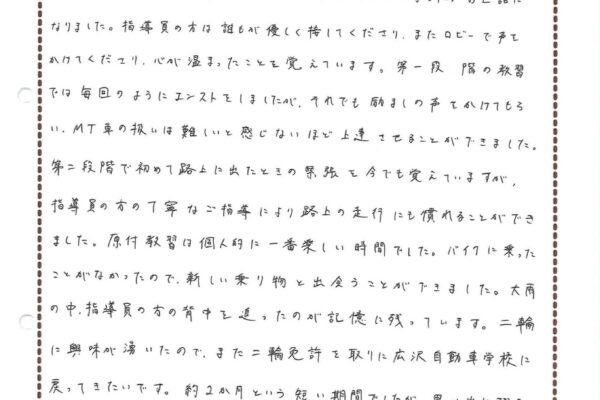 なりました。指導員の方は誰もが優しく接してくださり、またロビーで声を
かけてくださり、心が温まったことを覚えています。第一段 階の教習
では毎回のようにエンストをしましたが、それでも励ましの声をかけてもら
い、MT車の扱いは難しいと感じないほど上達させることができました。
第二段階で初めて路上に出たときの緊張を今でも覚えていますが、
指導員の方の丁寧なご指導により路上の走行にも慣れることができ
ました。原付教習は個人的に一番楽しい時間でした。バイクに乗った
ことがなかったので、新しい乗り物と出会うことができました。大雨
の中、指導員の方の背中を追ったのが記憶に残っています。二輪
に興味が湧いたので、また二輪免許を取りに広沢自動車学校に
戻ってきたいです。約2か月という短い期間でしたが、